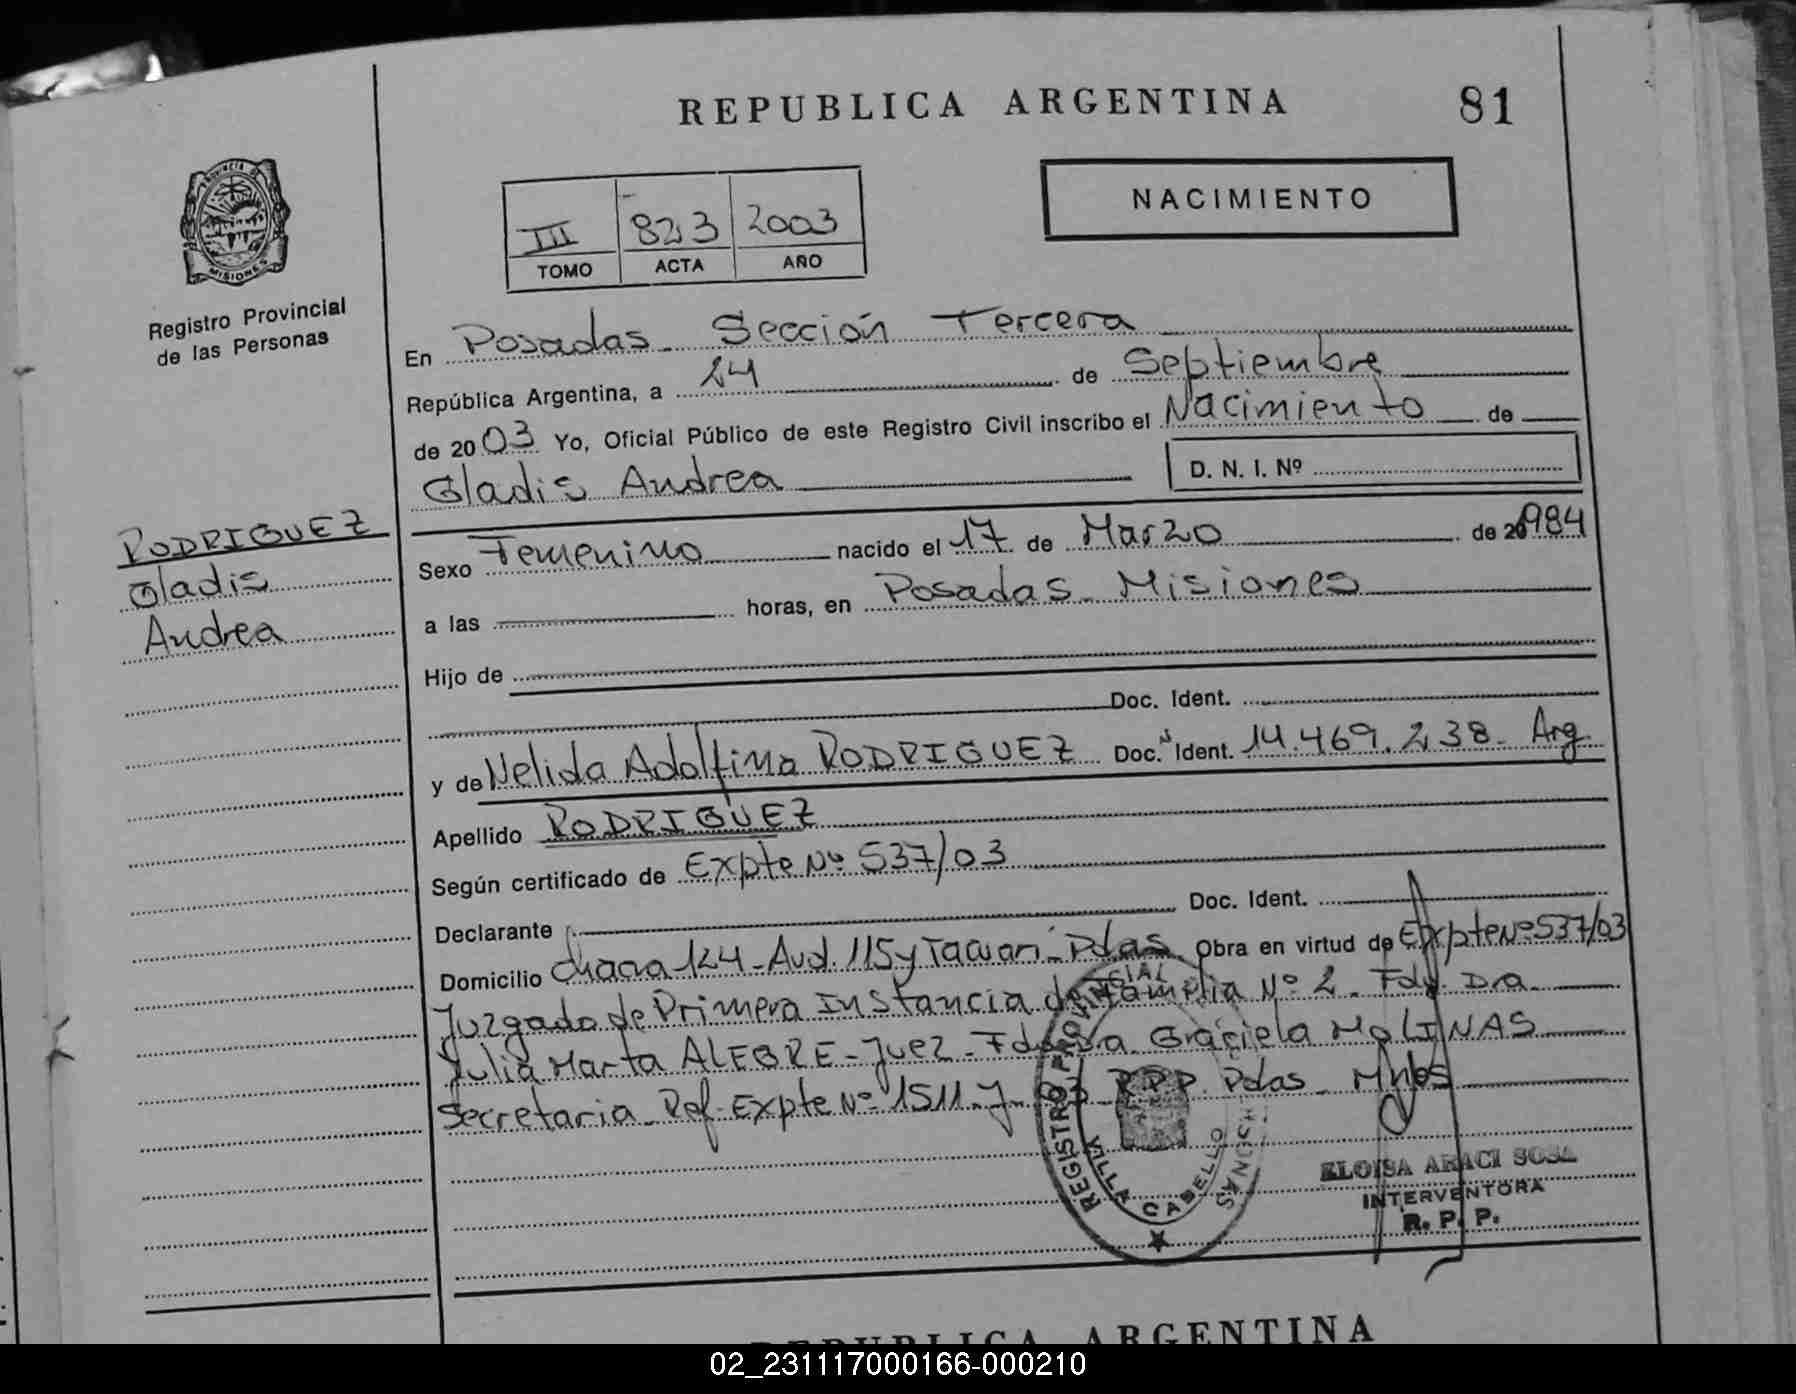 REPUBLICA ARGENTINA 81
PROVINCIA DE MISIONES
NACIMIENTO
III 823 2003
TOMO ACTA AÑO
Registro Provincial
de las Personas
En Posadas Sección Tercera
República Argentina, a 24 de Septiembre
de 2003 Yo, Oficial Público de este Registro Civil inscribo el Nacimiento de
Gladis Andrea D. N. I. Nº
RODRIGUEZ
Gladis
Andrea
Sexo Femenino nacido el 17 de Marzo de 1984
a las horas, en Posadas Misiones
Hijo de
Doc. Ident.
y de Nelida Adolfina RODRIGUEZ Doc. Ident. 14.469.238 - Arg
Apellido RODRIGUEZ
Según certificado de Expte Nº 537/03
Declarante Doc. Ident.
Domicilio Chacra 124 - Avd. 115 y Tacuarí - Pdas Obra en virtud de Expte Nº 537/03
Juzgado de Primera Instancia de Familia Nº 2 - Fdo. Dra
Julia Marta ALEGRE - Juez - Fdo. Dra Graciela MOLINAS
Secretaria Ref. Expte Nº 1511 - J - 03 RPP. Pdas - Mnes
REGISTRO PROVINCIAL
VILLA CABELLO
ELOISA ARACI SOSA
INTERVENTORA
R. P. P.
REPUBLICA ARGENTINA
02_231117000166-000210